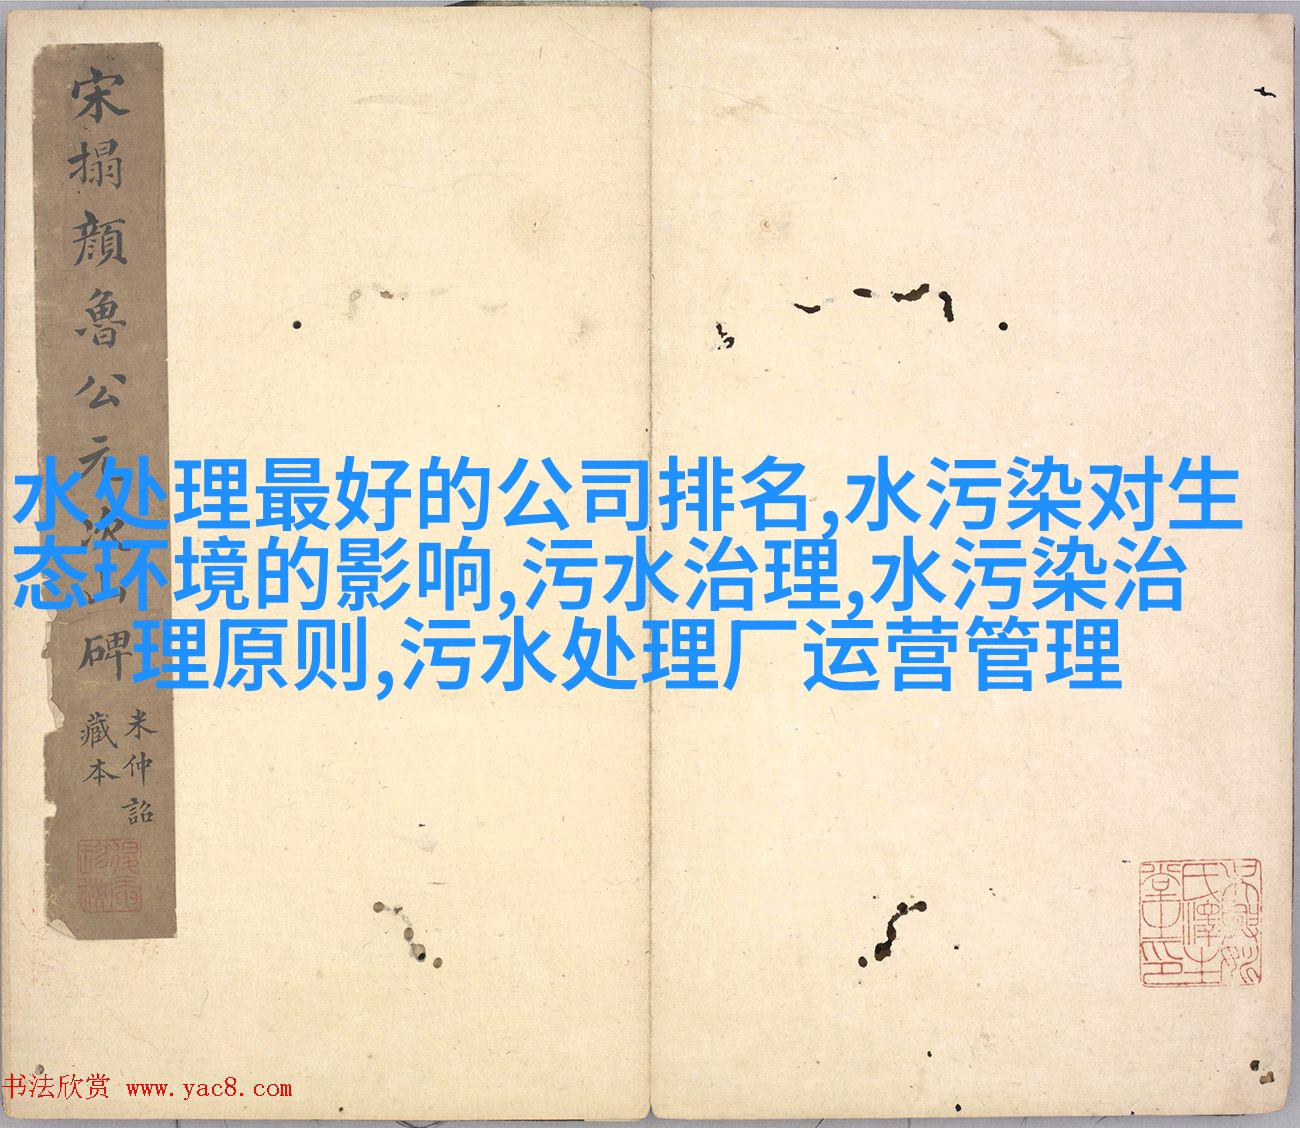 宋搨顔魯公元次山碑
米仲詔
藏本
水处理最好的公司排名,水污染对生
态环境的影响,污水治理,水污染治
理原则,污水处理厂运营管理
书法欣赏 www.yac8.com